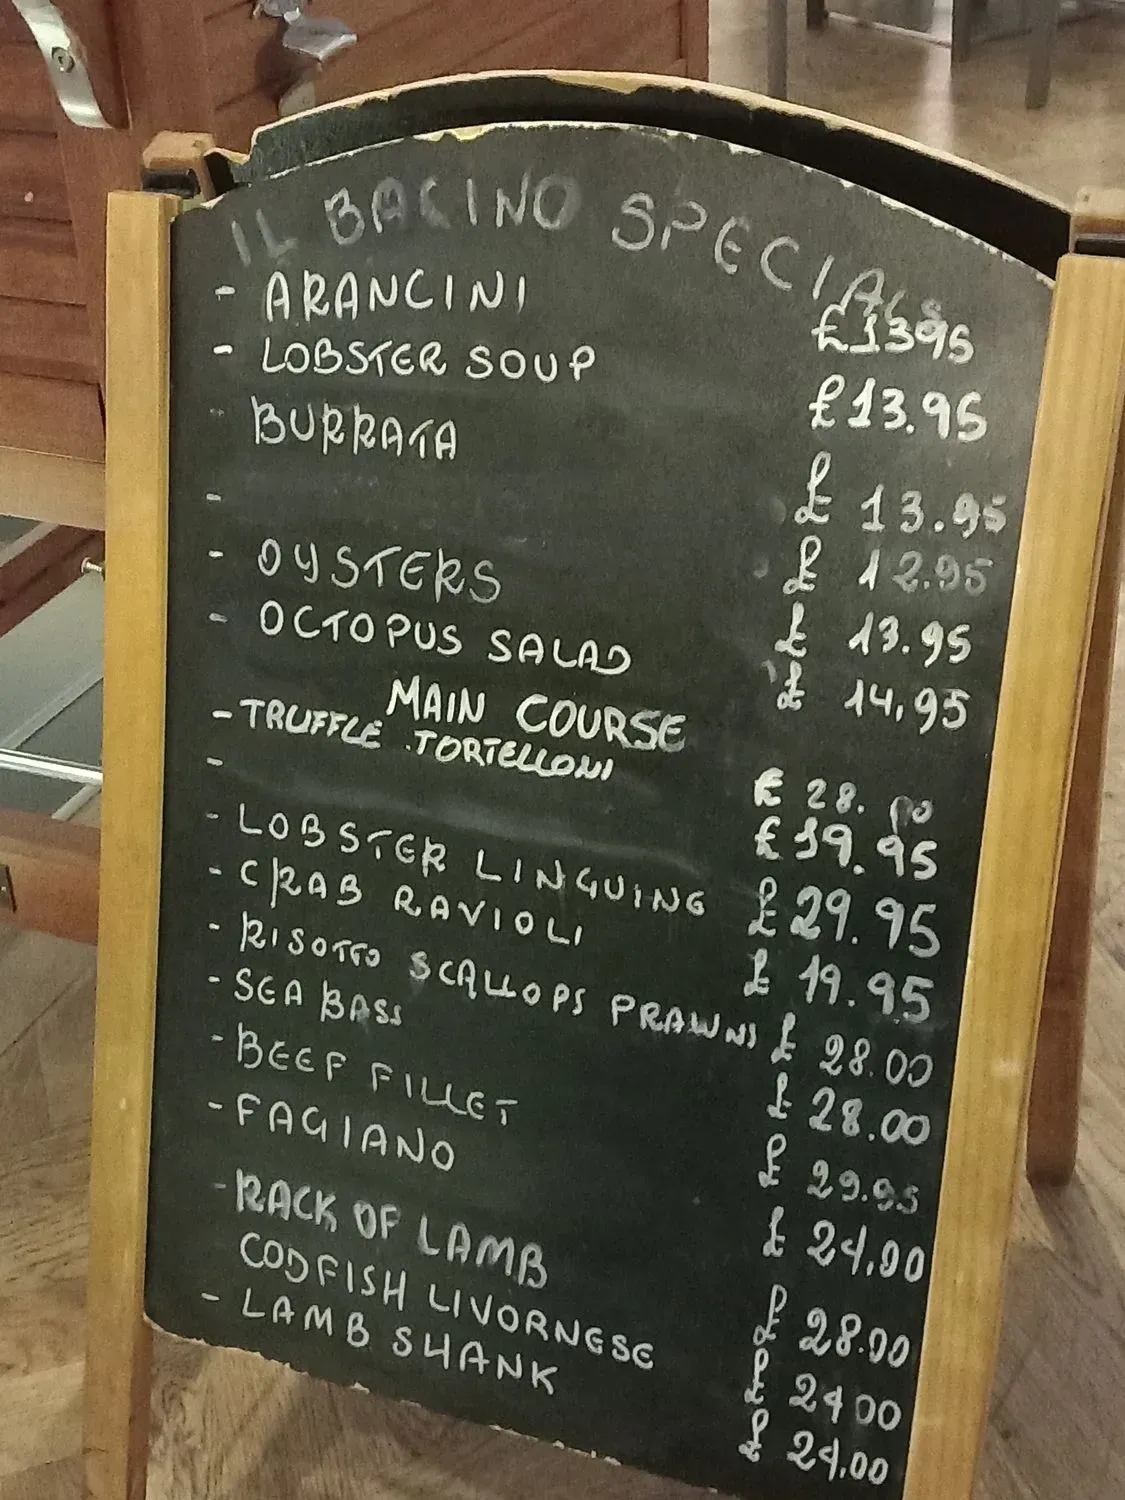 IL BACINO SPECIALS
- ARANCINI £13.95
- LOBSTER SOUP £13.95
- BURRATA £ 13.95
- £ 12.95
- OYSTERS £ 13.95
- OCTOPUS SALAD £ 14,95
MAIN COURSE
- TRUFFLE TORTELLONI £ 28.00
- £19.95
- LOBSTER LINGUINE £29.95
- CRAB RAVIOLI £ 19.95
- RISOTTO SCALLOPS PRAWNS £ 28.00
- SEA BASS £ 28.00
- BEEF FILLET £ 29.95
- FAGIANO £ 24,00
- RACK OF LAMB £ 28.00
CODFISH LIVORNESE £ 24 00
- LAMB SHANK £ 24,00